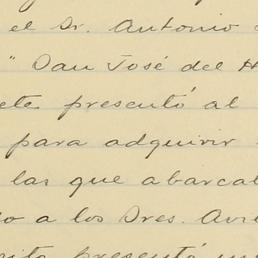 el Sr. Antonio
" San José del H
ete presentó al
para adquirir
las que abarcab
o a los Sres. Avi
presentó